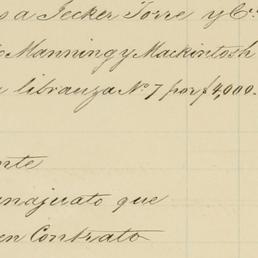 a Jecker Torre y Cª
Manning y Mackintosh
libranza Nº 7 por $4,000.
que
en Contrato